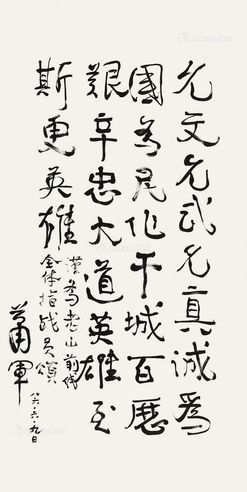 允文允武允真誠為
國為民作干城百歷
艱辛忠大道英雄至
斯更英雄
謹為老山前线
全体指战员頌
蕭軍
八六.六.九日